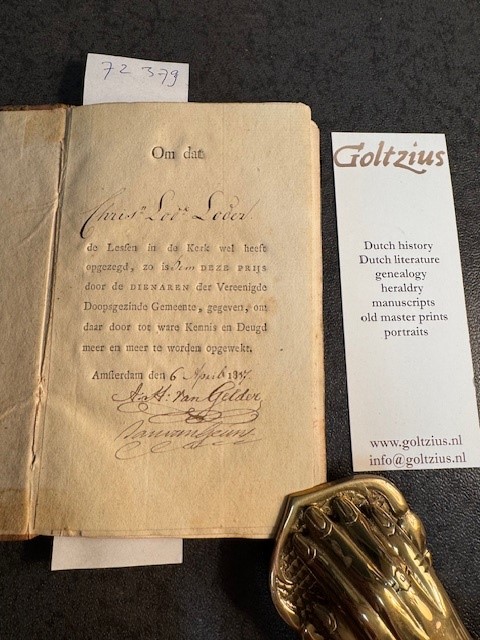 72 379
Om dat
Chrisn. Lodk. Loder
de Lessen in de Kerk wel heeft
opgezegd, zo is hem DEZE PRIJS
door de DIENAREN der Vereenigde
Doopsgezinde Gemeente, gegeven, om
daar door tot ware Kennis en Deugd
meer en meer te worden opgewekt.
Amsterdam den 6 April 18
A. H. van Gelder
Goltzius
Dutch history
Dutch literature
genealogy
heraldry
manuscripts
old master prints
portraits
www.goltzius.nl
info@goltzius.nl